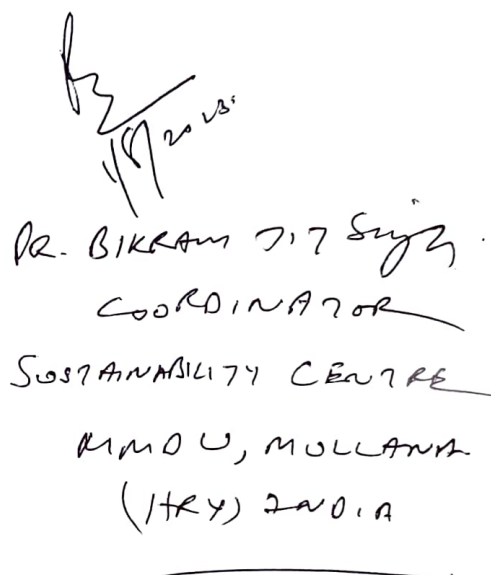 2023.
DR. BIKRAM JIT Singh.
COORDINATOR
SUSTAINABILITY CENTRE
MMDU, MULLANA
(HRY) INDIA